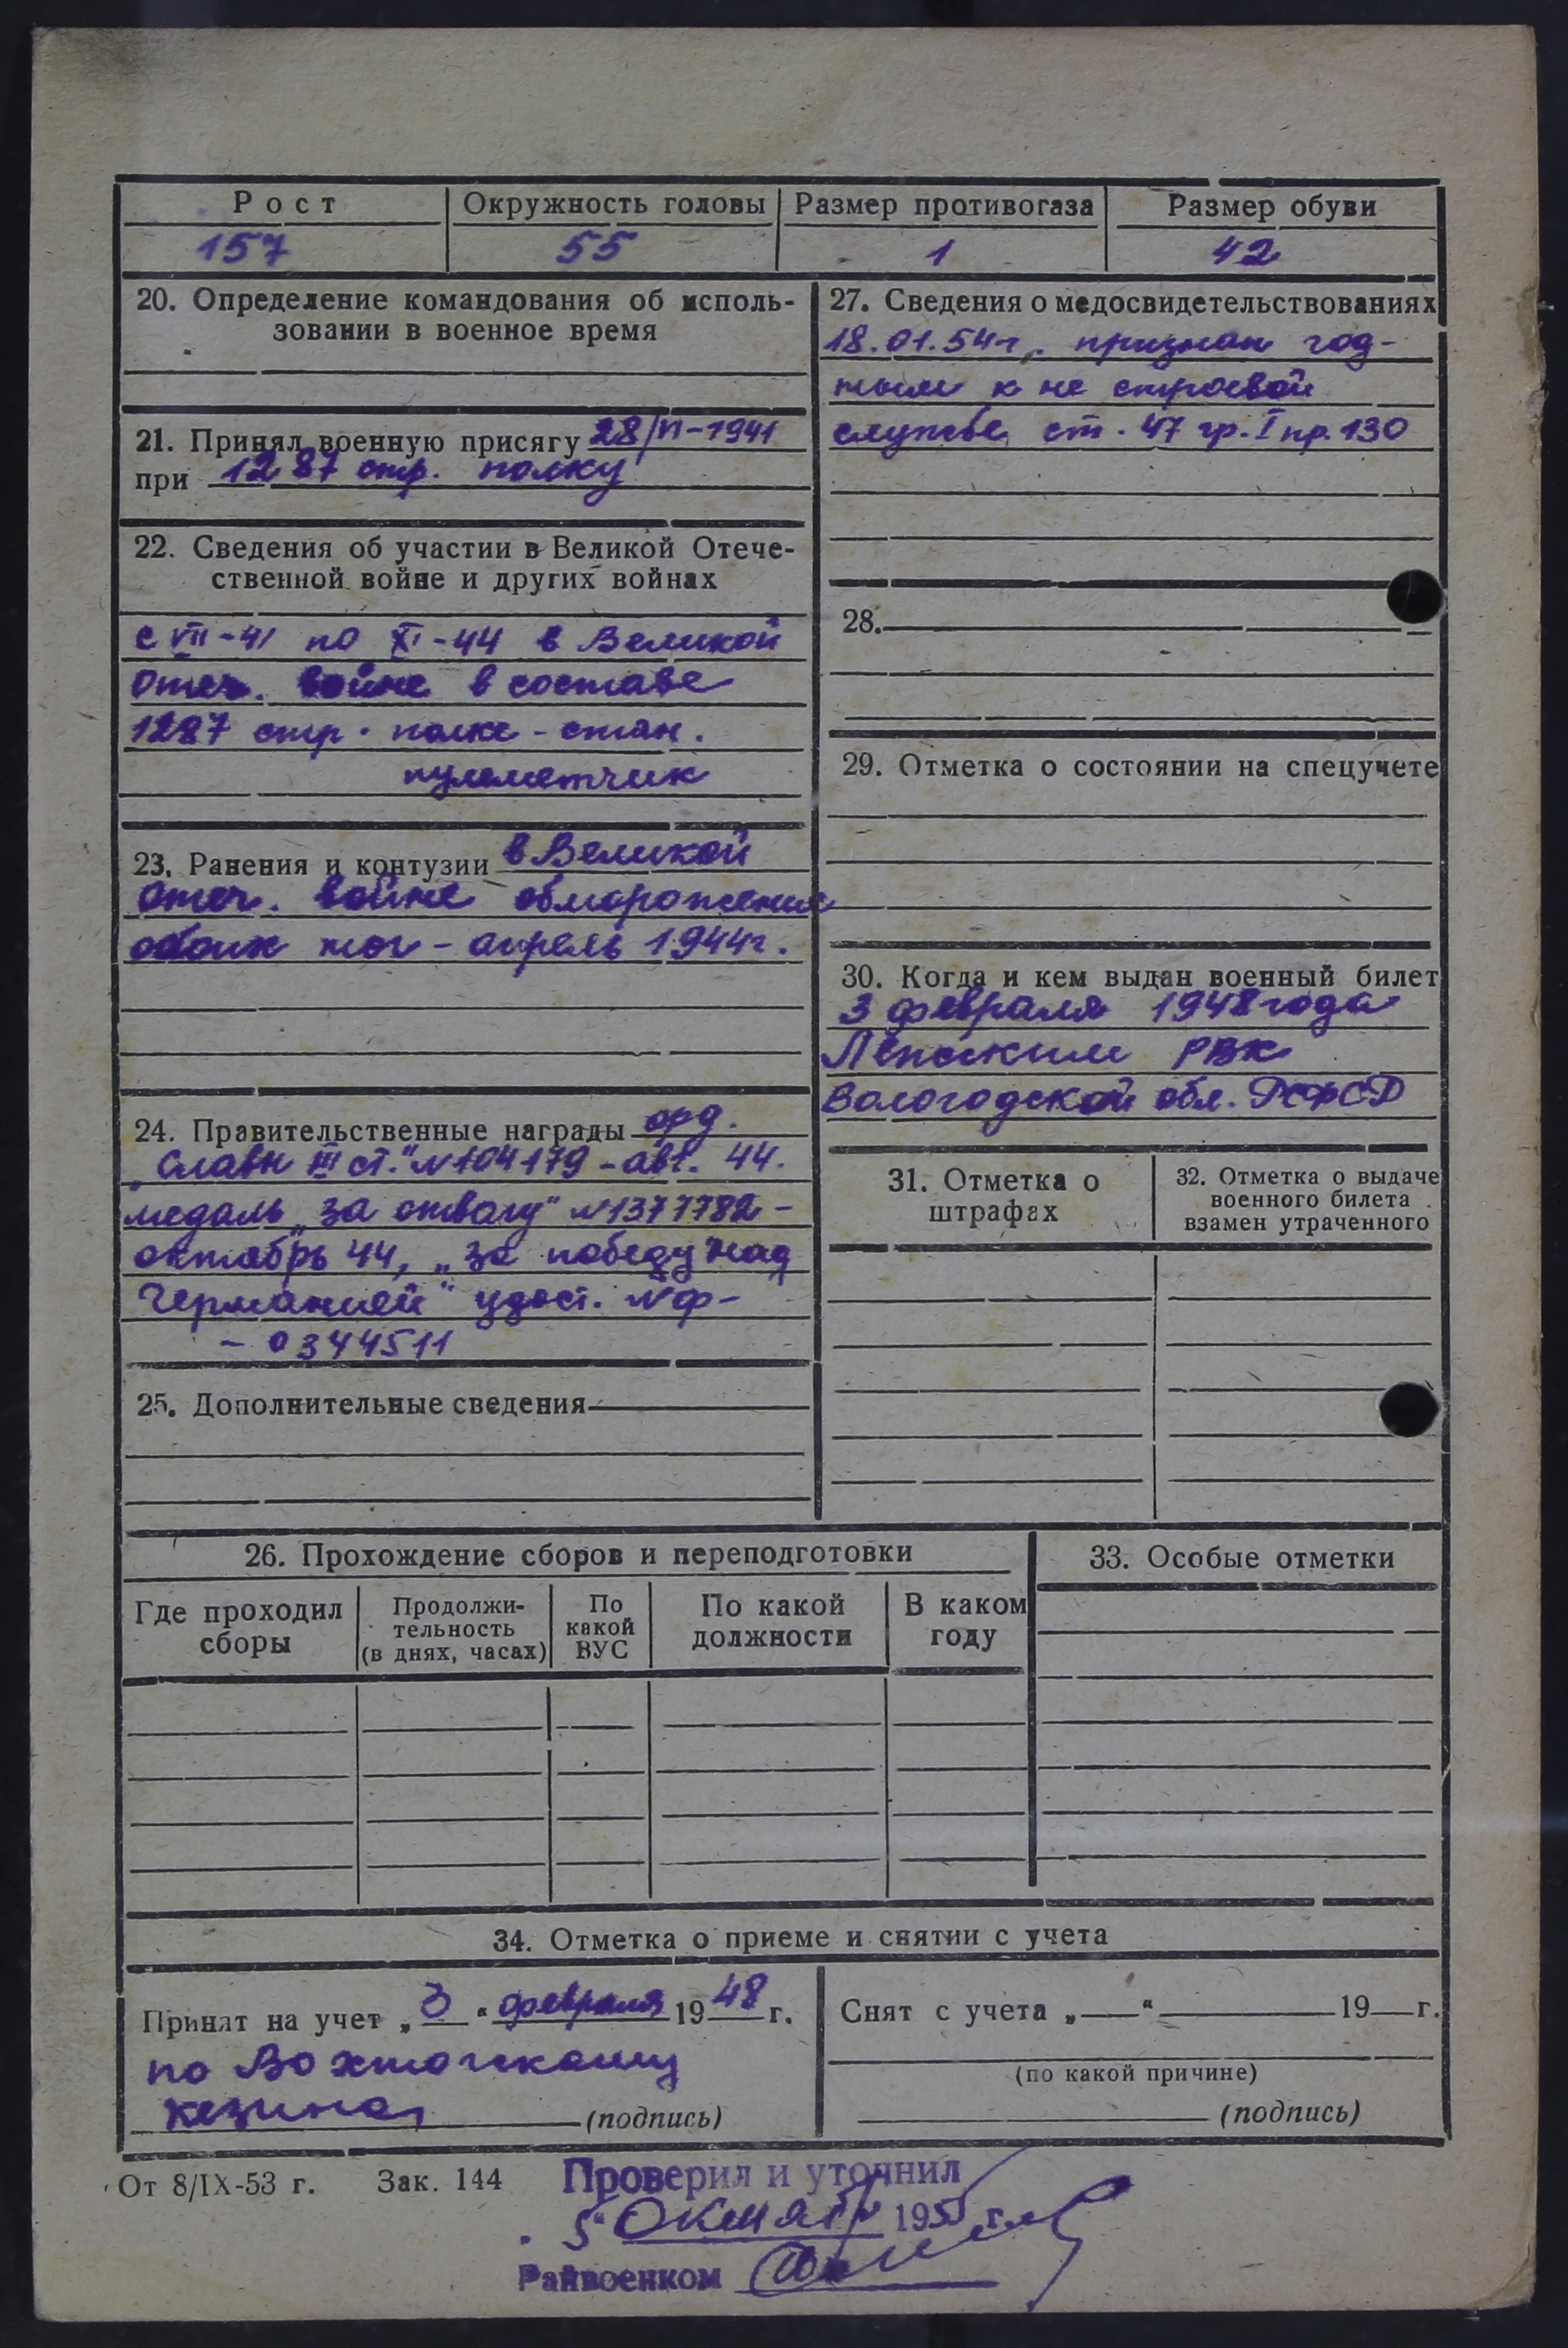 Рост Окружность головы Размер противогаза Размер обуви
157 55 1 42
20. Определение командования об исполь-
зовании в военное время
21. Принял военную присягу 28/VI-1941
при 1287 стр. полку
22. Сведения об участии в Великой Отече-
ственной войне и других войнах
с VII-41 по XI-44 в Великой
Отеч. войне в составе
1287 стр. полка - стан.
пулеметчик
23. Ранения и контузии в Великой
Отеч. войне обморожение
обоих ног - апрель 1944г.
24. Правительственные награды орд.
"Славы III ст." №104179 - авг. 44.
медаль "За отвагу" №1377782 -
октябрь 44, "За победу над
Германией" удост. №Ф-
- 0344511
25. Дополнительные сведения
27. Сведения о медосвидетельствованиях
18.01.54г. признан год-
ным к не строевой
службе ст. 47 гр. I пр. 130
28.
29. Отметка о состоянии на спецучете
30. Когда и кем выдан военный билет
3 февраля 1948 года
РВК
Вологодской обл. РСФСР
31. Отметка о
штрафах
32. Отметка о выдаче
военного билета
взамен утраченного
26. Прохождение сборов и переподготовки
Где проходил
сборы
Продолжи-
тельность
(в днях, часах)
По
какой
ВУС
По какой
должности
В каком
году
33. Особые отметки
34. Отметка о приеме и снятии с учета
Принят на учет „3“ февраля 1948 г.
по Вохтожскому
(подпись)
Снят с учета „ “ 19 г.
(по какой причине)
(подпись)
От 8/IX-53 г. Зак. 144
Проверил и уточнил
"5" октября 1955 г.
Райвоенком